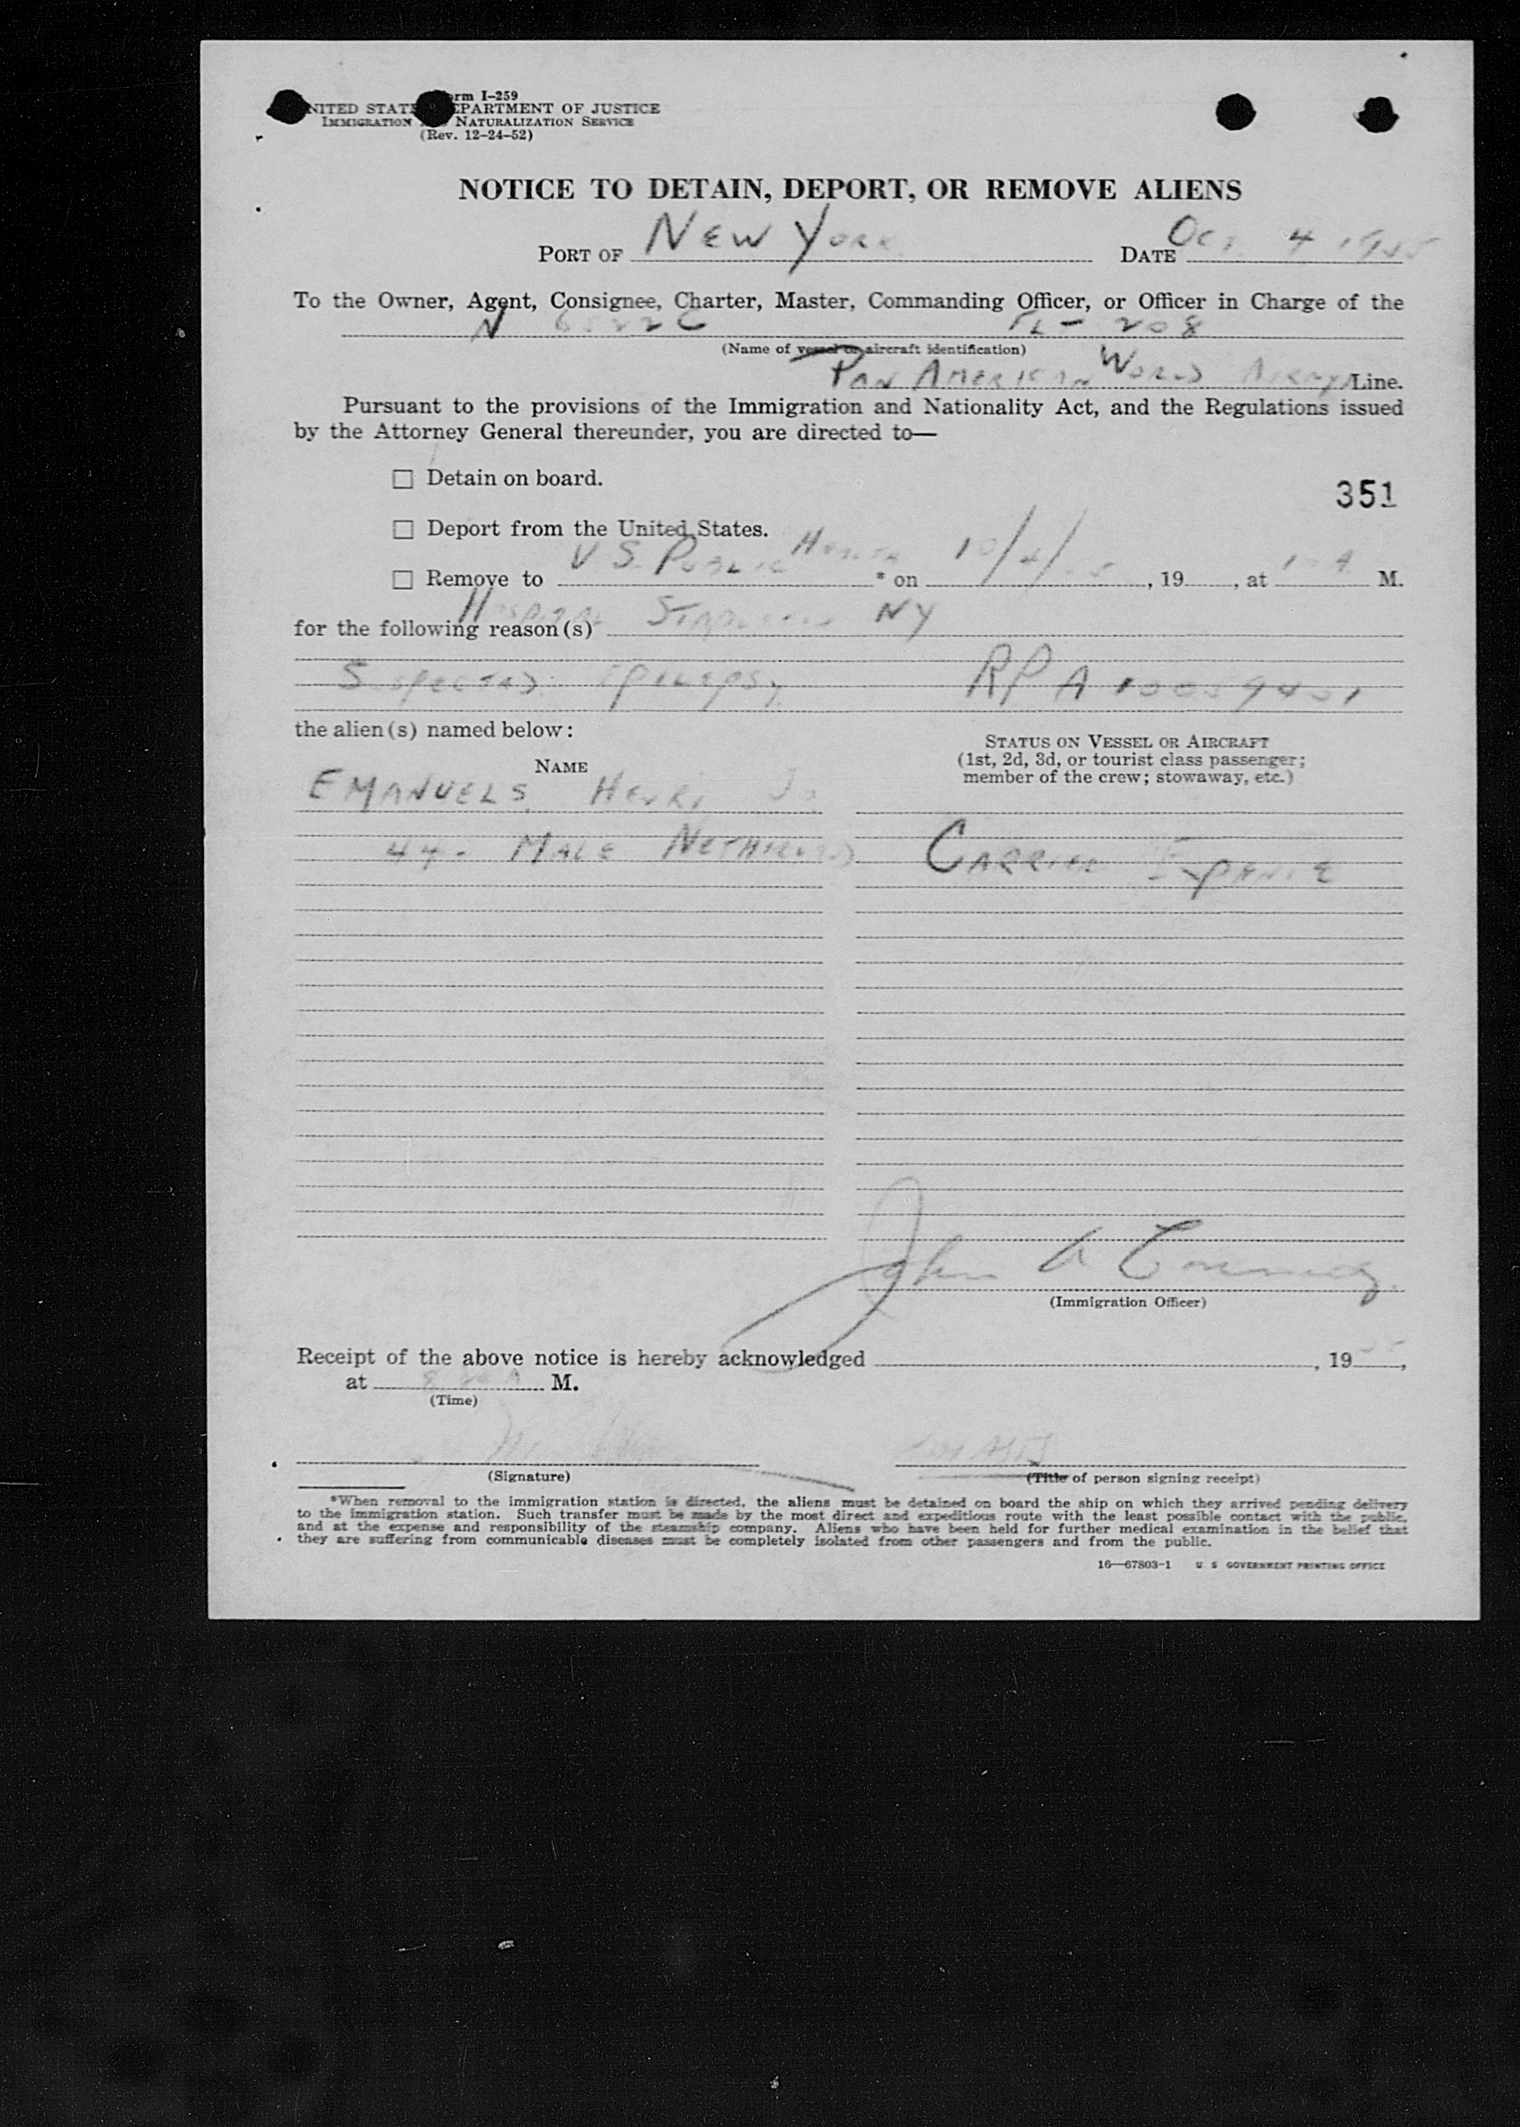 Form I-259
UNITED STATES DEPARTMENT OF JUSTICE
IMMIGRATION AND NATURALIZATION SERVICE
(Rev. 12-24-52)
NOTICE TO DETAIN, DEPORT, OR REMOVE ALIENS
PORT OF NEW YORK DATE OCT 4 1955
To the Owner, Agent, Consignee, Charter, Master, Commanding Officer, or Officer in Charge of the
N 6522C FL- 208
(Name of vessel or aircraft identification)
PAN AMERICAN WORLD AIRWAYS Line.
Pursuant to the provisions of the Immigration and Nationality Act, and the Regulations issued
by the Attorney General thereunder, you are directed to—
☐ Detain on board.
351
☐ Deport from the United States.
☐ Remove to U S PUBLIC HEALTH * on 10/4/55, 19 , at M.
HOSPITAL STAPLETON NY
for the following reason(s)
SUSPECTED EPILEPSY RPA
the alien(s) named below:
NAME
STATUS ON VESSEL OR AIRCRAFT
(1st, 2d, 3d, or tourist class passenger;
member of the crew; stowaway, etc.)
EMANUELS, HENRI
44- MALE NETHERLAND CARRIER EXPENSE
John A
(Immigration Officer)
Receipt of the above notice is hereby acknowledged , 1955,
at M.
(Time)
(Signature) (Title of person signing receipt)
*When removal to the immigration station is directed, the aliens must be detained on board the ship on which they arrived pending delivery
to the immigration station. Such transfer must be made by the most direct and expeditious route with the least possible contact with the public,
and at the expense and responsibility of the steamship company. Aliens who have been held for further medical examination in the belief that
they are suffering from communicable diseases must be completely isolated from other passengers and from the public.
16—67803-1 U S GOVERNMENT PRINTING OFFICE